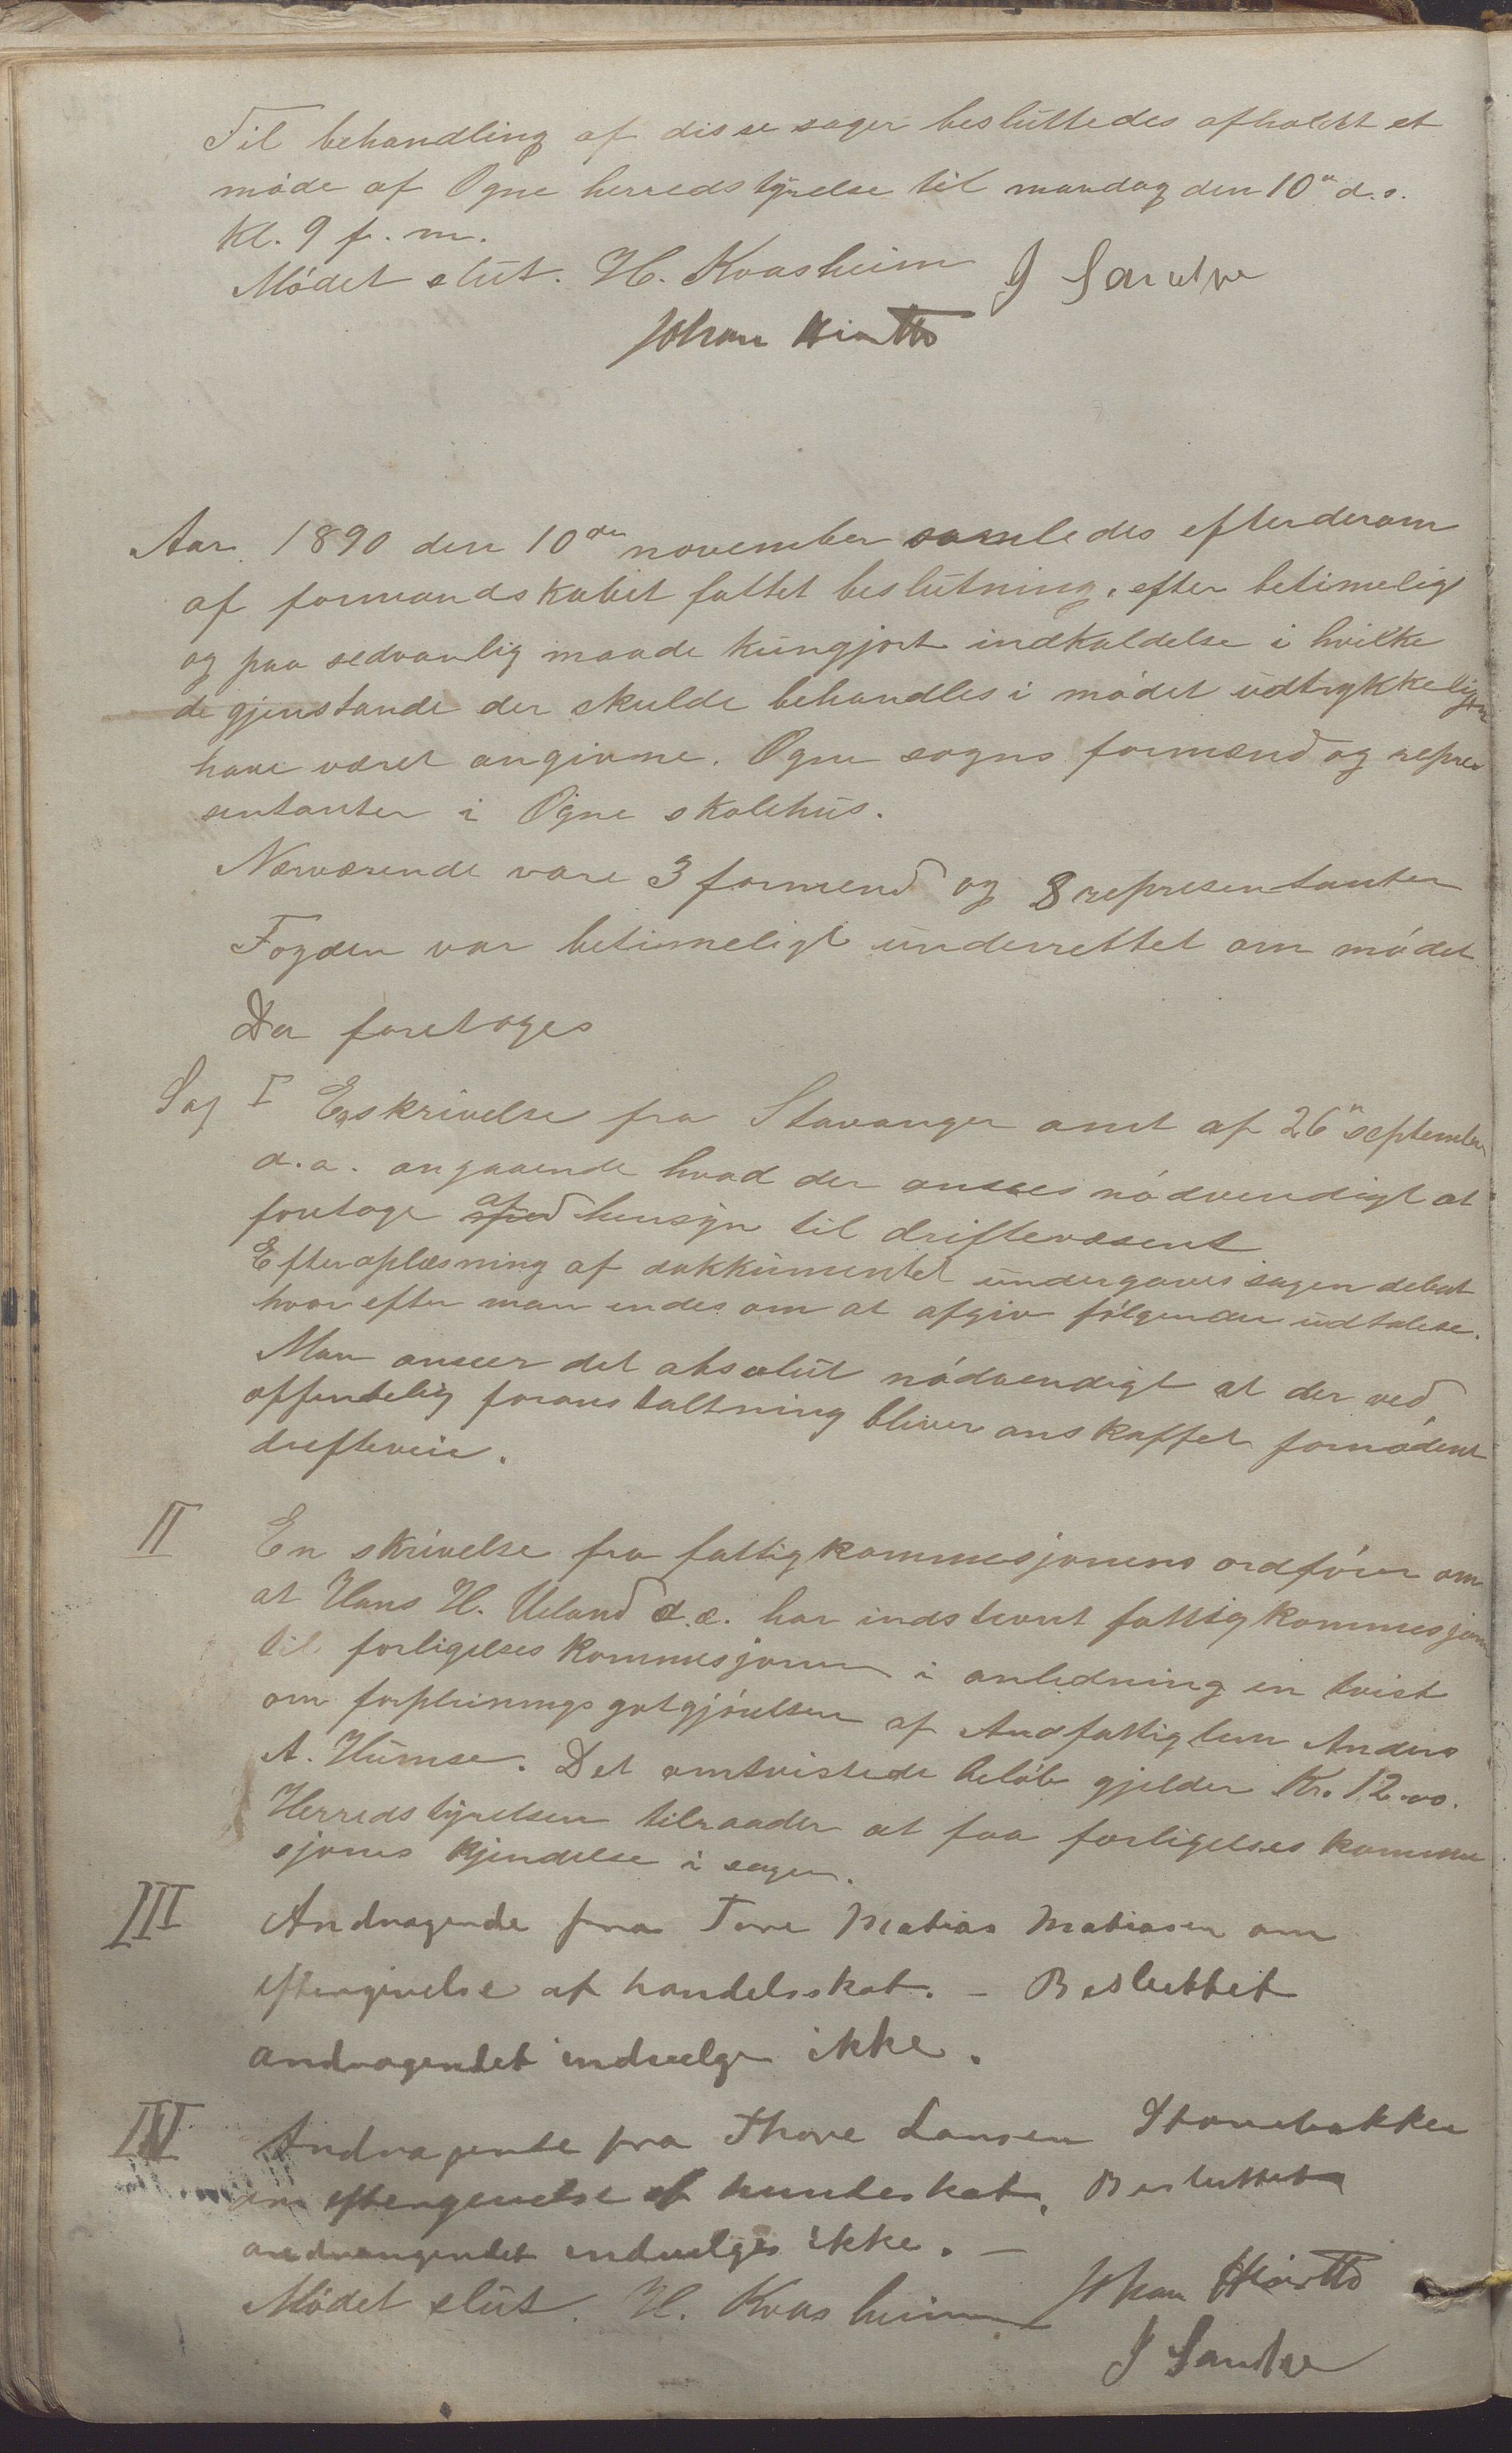 Til behandling af disse sager besluttedes afholdt et
møde af Ogne herredstyrelse til mandag den 10n d.s.
Kl. 9 f.m.
Mödet slut. H. Kvasheim J Sandve
Johan Hiorth
Aar 1890 den 10de november samledes efter derom
af formandskabet fattet beslutning, efter betimeligt
og paa sedvanlig maade kungjort indkaldelse i hvilke
de gjenstande der skulde behandles i mödet udtrykkeligen
have været angivne. Ogne sogns formænd og repre
sentanter i Ogne skolehus.
Nærværende vare 3 formend og 8 representanter
Fogden var betimeligt underrettet om mödet
Da foretoges
Sag I En skrivelse fra Stavanger amt af 26n september
d.a. angaaende hvad der ansees nödvendigt at
foretage af hensyn til driftevæsent
Efter oplæsning af dokkumentet undergaves sagen debat
hvorefter man endes om at afgiv fölgende udtalese.
Man anseer det absolut nödvendigt at der ved
offentelig foranstaltning bliver anskaffet fornödent
drifteveie.
II En skrivelse fra fattigkommesjonens ordförer om
at Hans H. Ueland d.æ. har indstevnt fattigkommesjonen
til forligelseskommesjonen i anledning en tvist
om forpleiningsgotgjörelsen af
A. Humse. Det omtvistede belöb gjelder Kr. 12.00.
Herredstyrelsen tilraader at faa forligelses komme
sjones kjendelse i sagen.
III Andragende fra Tore Matias Matiasen om
eftergivelse af handelsskat. – Besluttet
andragendet indvelges ikke.
IV Andragende fra Thore Larsen Stornebakken
om eftergivelse af hundeskat. Besluttet
andrangendet indvelges ikke. –
Mödet slut. H. Kvasheim Johan Hiorth
J Sandve